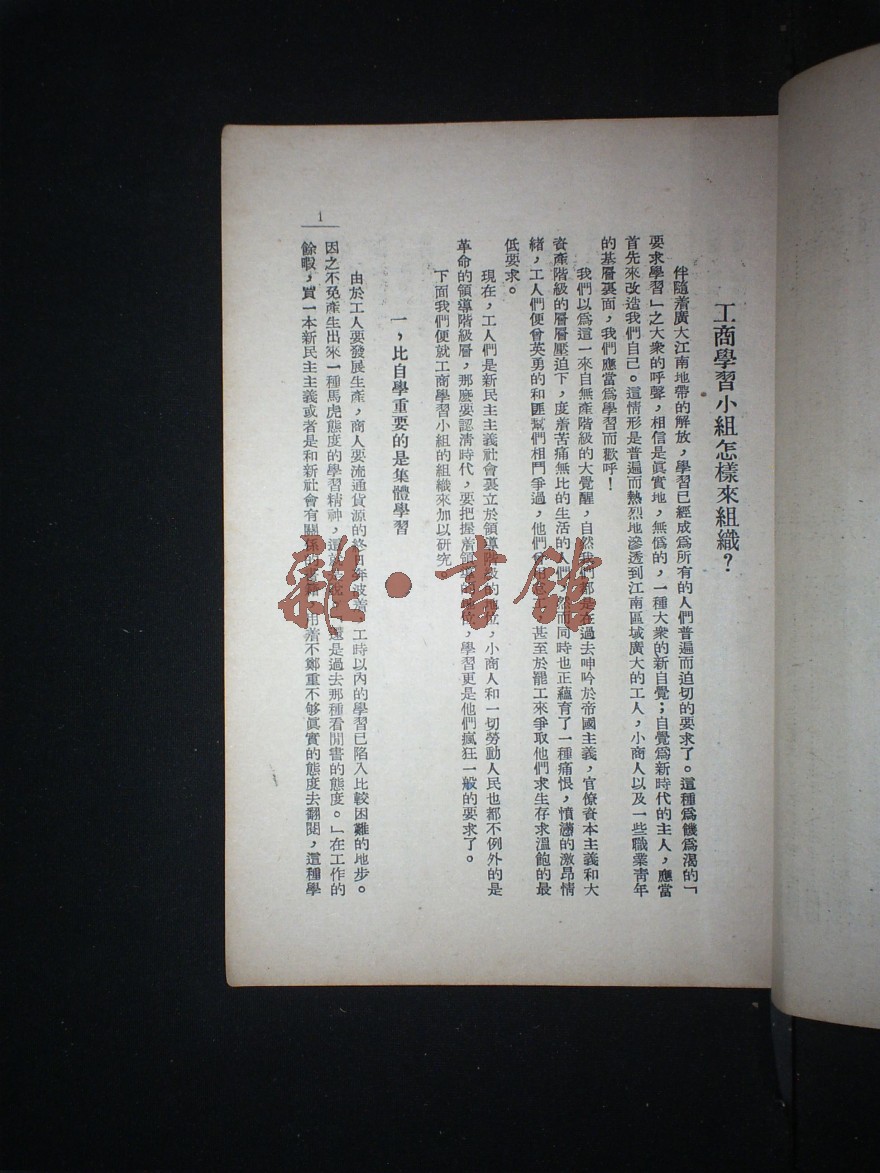 工商學習小組怎樣來組織？
伴隨着廣大江南地帶的解放，學習已經成爲所有的人們普遍而迫切的要求了。這種爲饑爲渴的「
要求學習」之大衆的呼聲，相信是眞實地，無僞的，一種大衆的新自覺；自覺爲新時代的主人，應當
首先來改造我們自己。這情形是普遍而熱烈地滲透到江南區域廣大的工人，小商人以及一些職業靑年
的基層裏面，我們應當爲學習而歡呼！
我們以爲這一來自無產階級的大覺醒，自然我們都是在過去呻吟於帝國主義，官僚資本主義和大
資產階級的層層壓迫下，度着苦痛無比的生活的人們，然而同時也正蘊育了一種痛恨，憤懣的激昂情
緒，工人們便曾英勇的和匪幫們相鬥爭過，他們曾用怠工甚至於罷工來爭取他們求生存求溫飽的最
低要求。
現在，工人們是新民主主義社會裏立於領導階級的地位，小商人和一切勞動人民也都不例外的是
革命的領導階級層，那麼要認淸時代，要把握着領導的地位，學習更是他們瘋狂一般的要求了。
下面我們便就工商學習小組的組織來加以研究
一，比自學重要的是集體學習
由於工人要發展生產，商人要流通貨源的終日奔波着，工時以內的學習已陷入比較困難的地步。
因之不免產生出來一種馬虎態度的學習精神，這就是說「還是過去那種看閒書的態度。」在工作的
餘暇，買一本新民主主義或者是和新社會有關係的書籍，用着不鄭重不够眞實的態度去翻閱，這種學
1
雜·書館